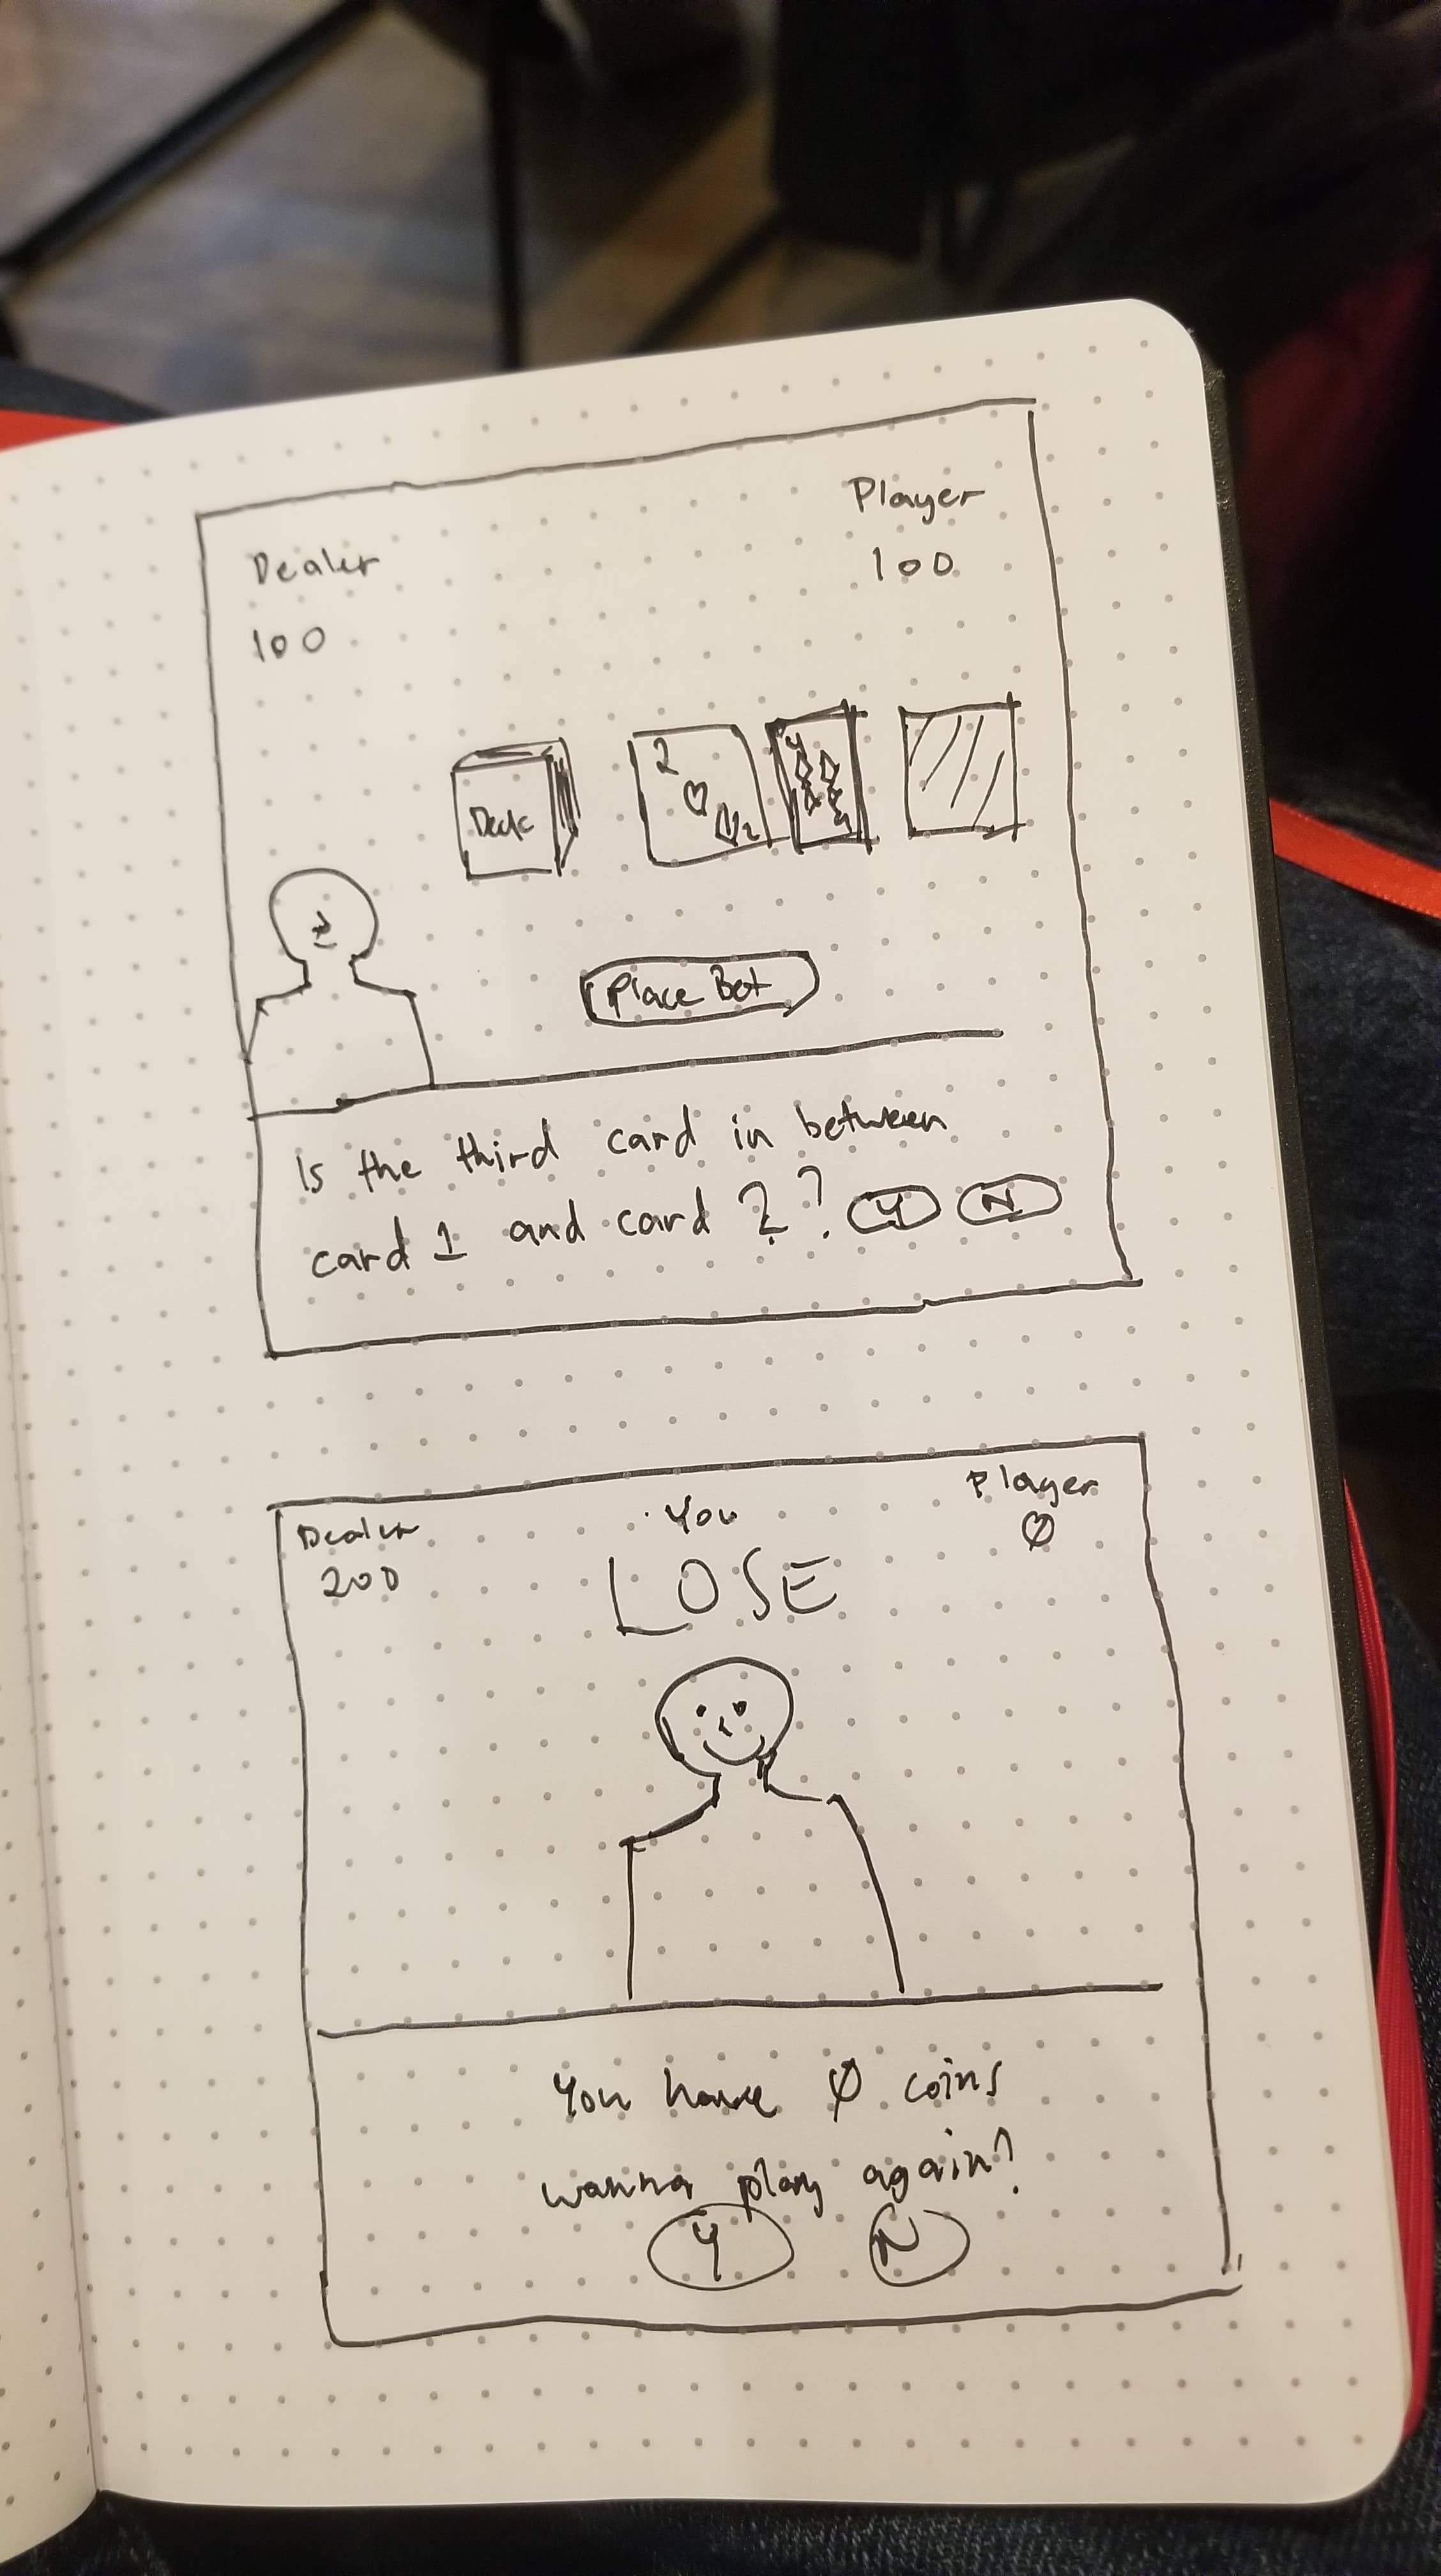 Player
Dealer
100
100
Deck
2
2
4
4
Place Bet
Is the third card in between
card 1 and card 2? Y N
Dealer
200
You
LOSE
Player
0
You have 0 coins
wanna play again?
Y N